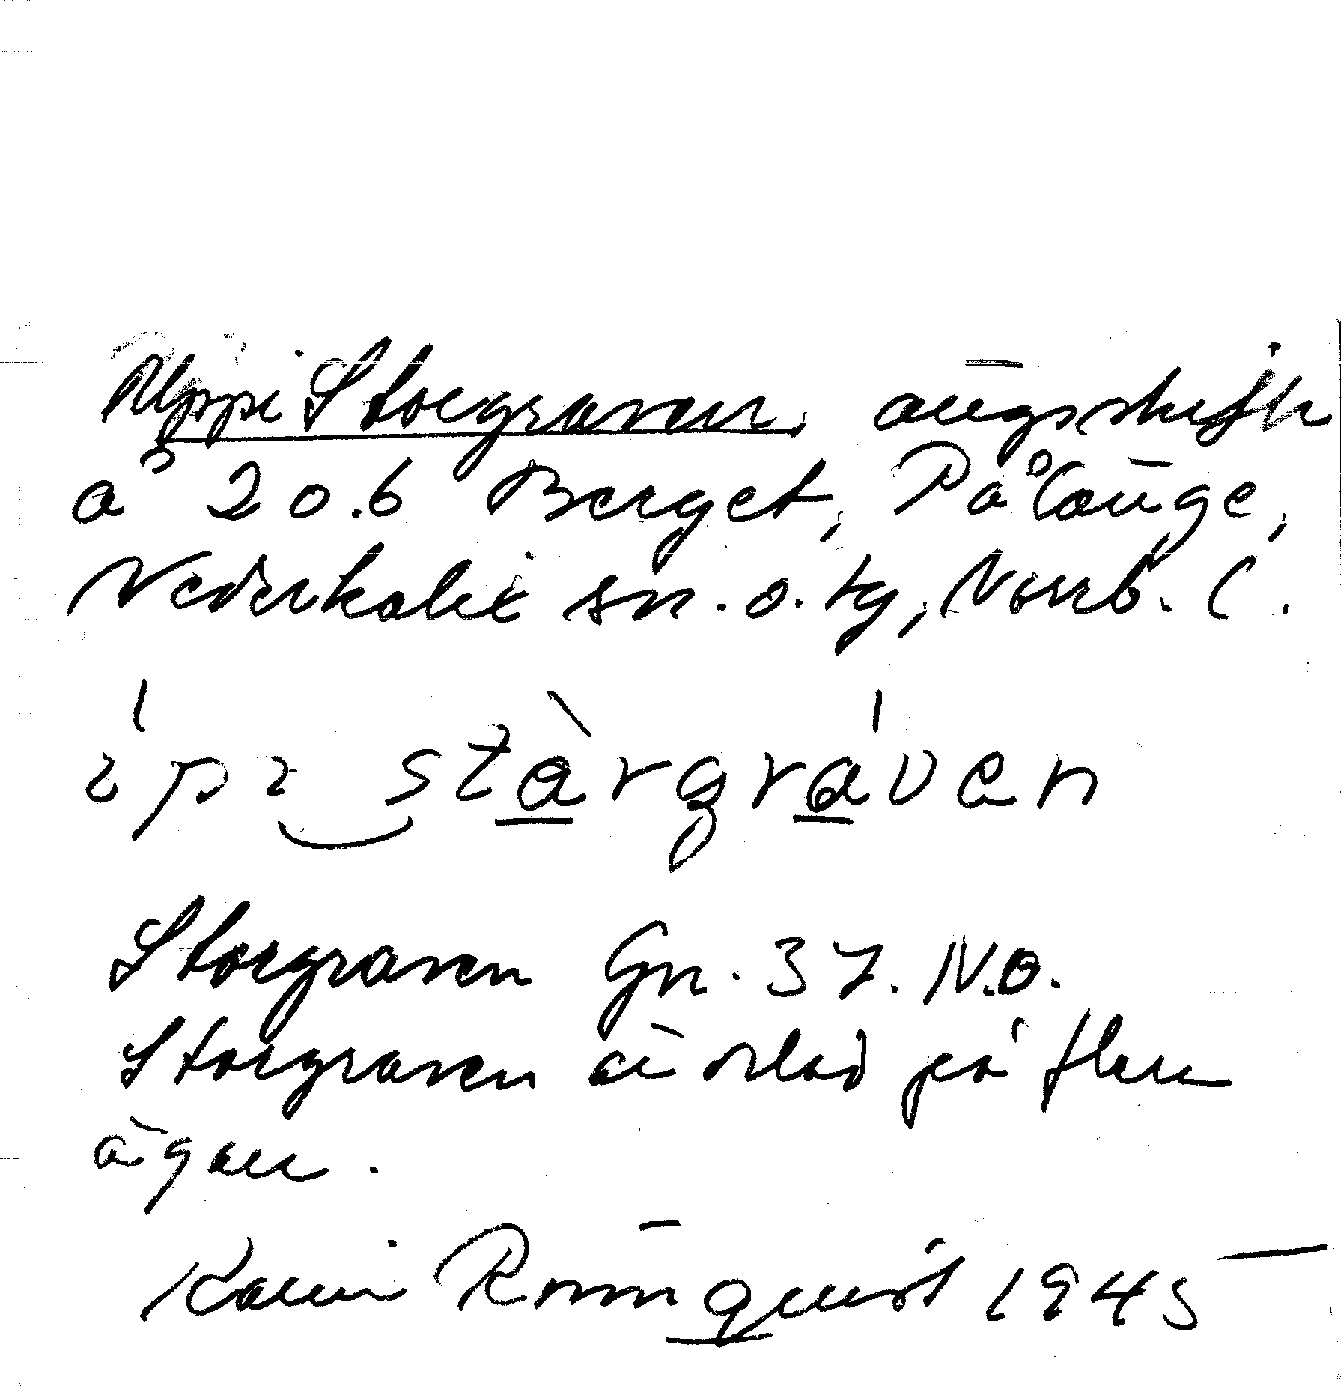 Uppi Storgraven, ängsskifte
å 20.6 Berget, Pålänge,
Nederkalix sn. o. tg, Norrb. l.
ipi stårgråven
Storgraven Gn. 37. N.O.
Storgraven är delad på flera
ägare.
Karin Rönnquist 1945